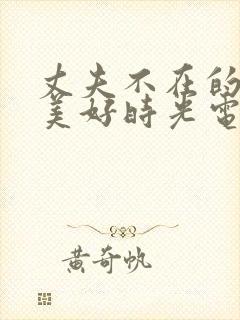 丈夫不在的
美好時光電
黃奇帆